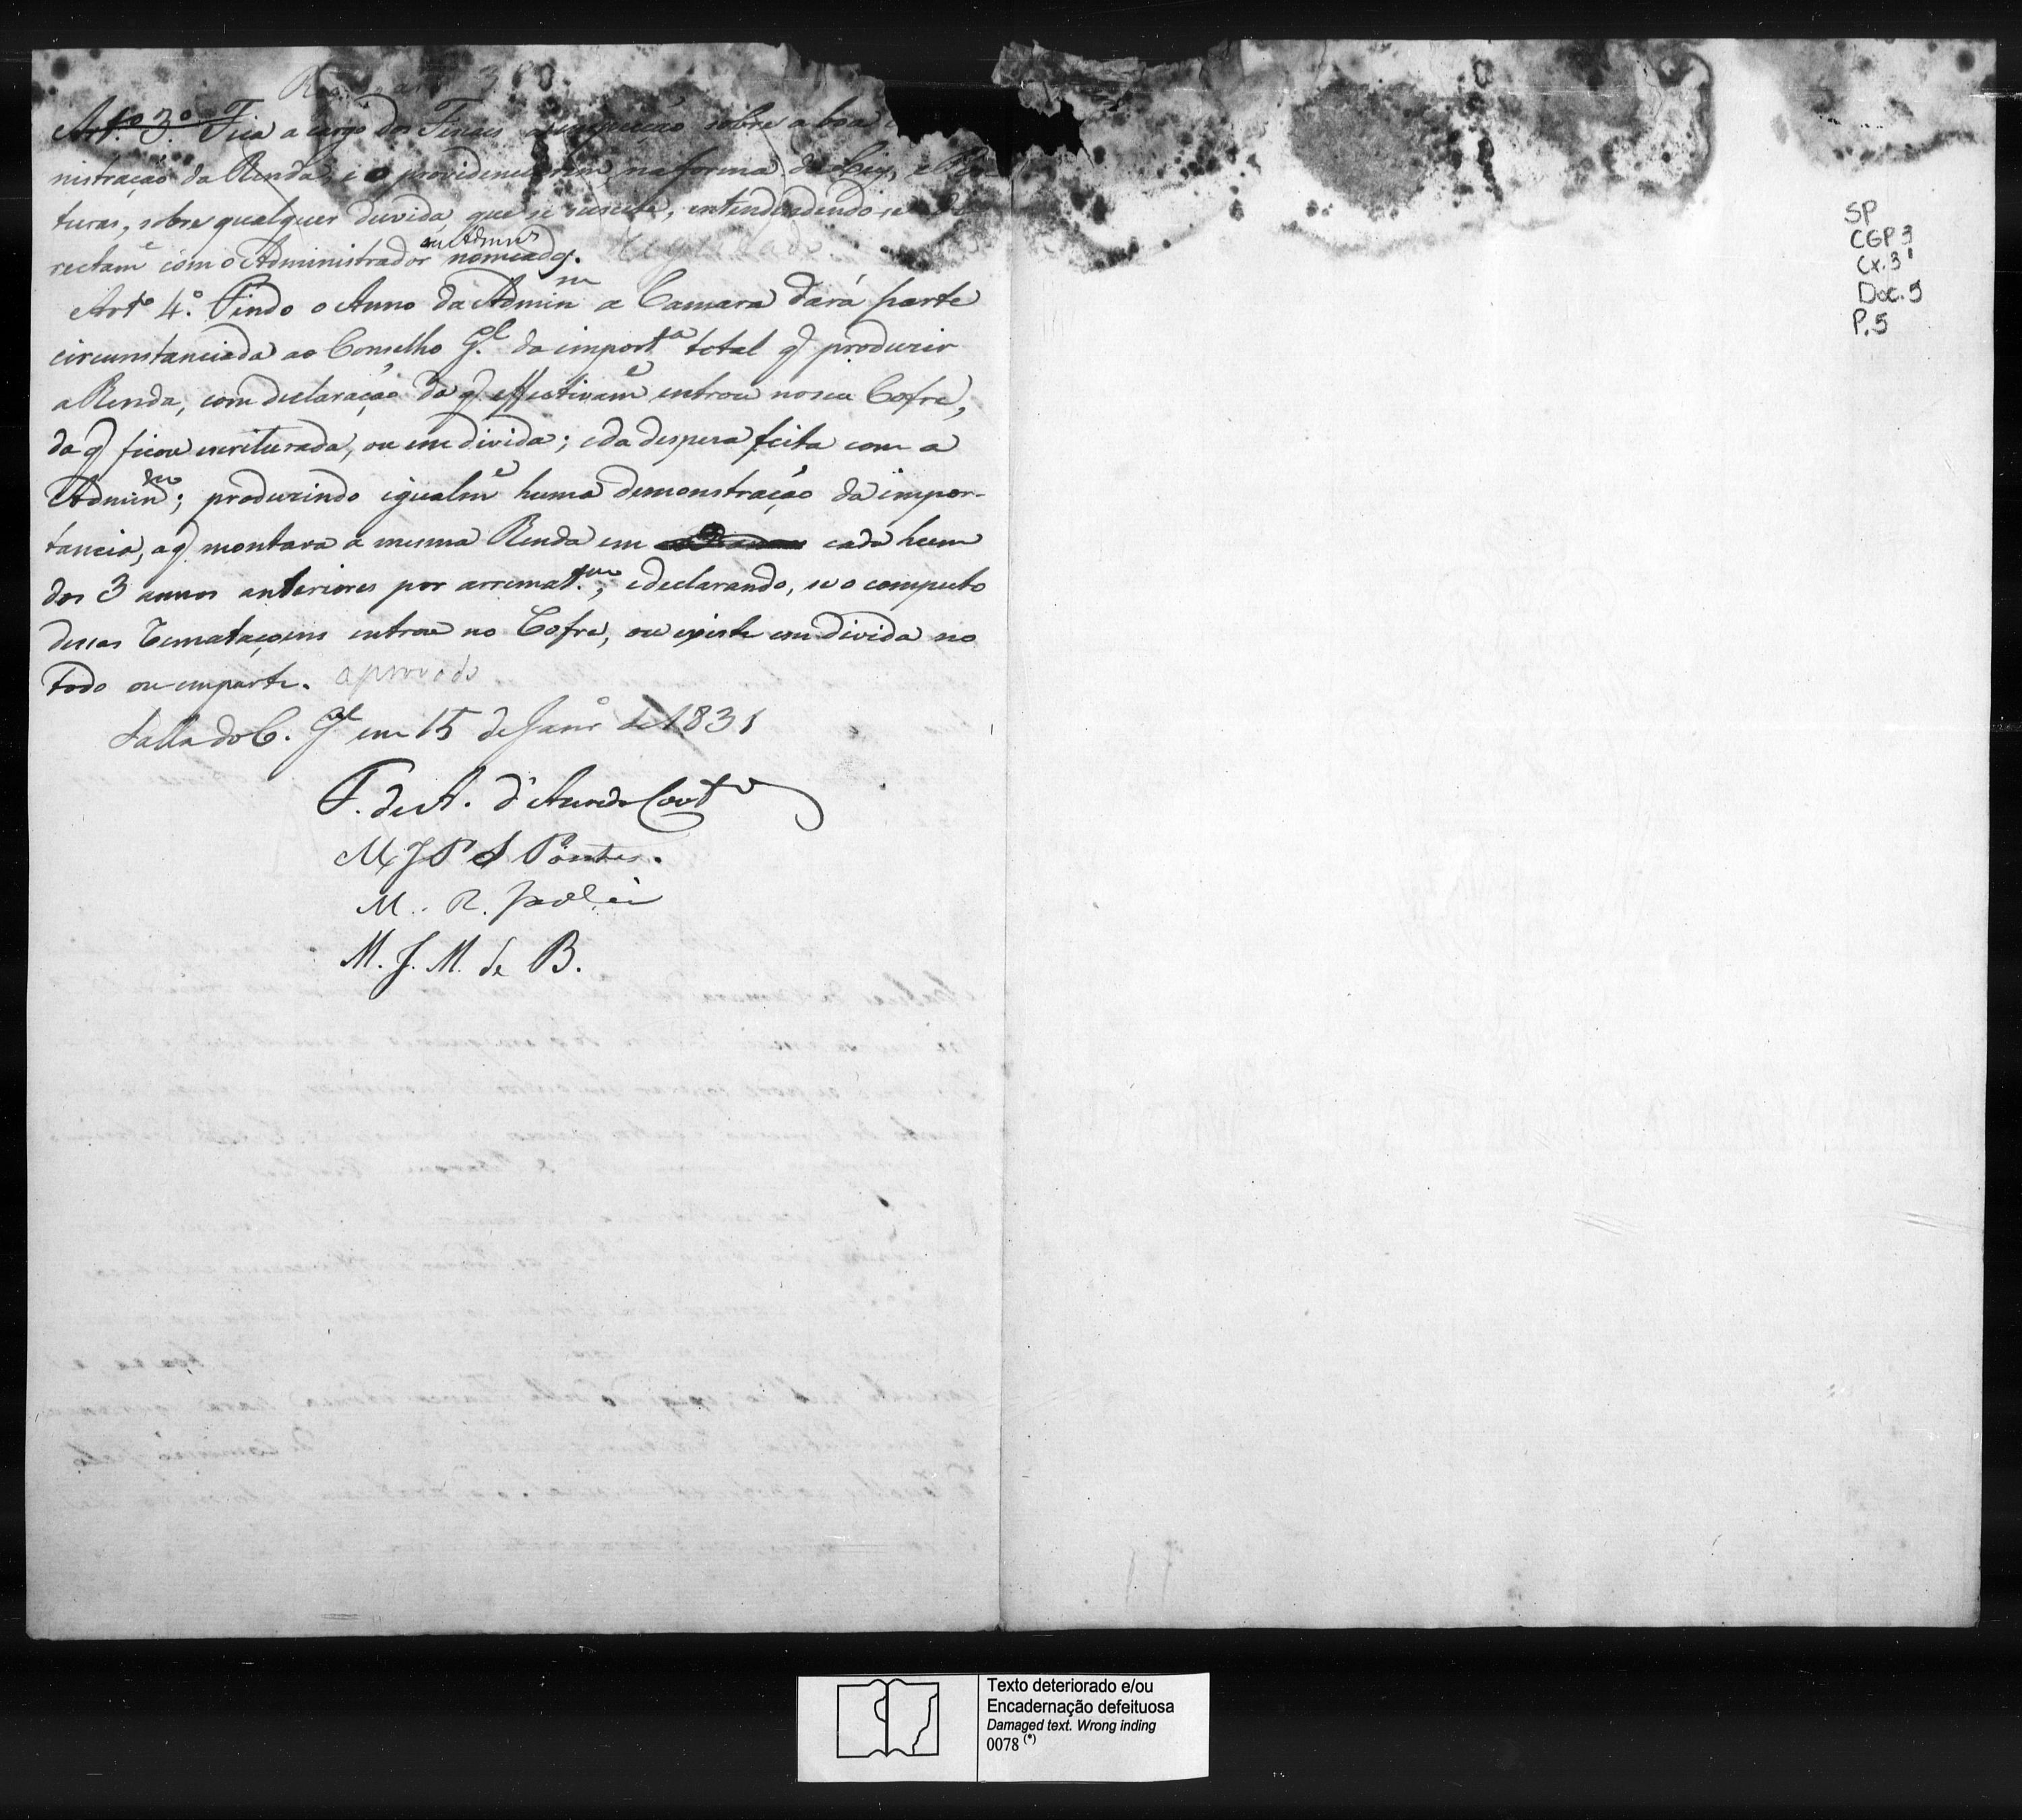 Art.º 3.º Fica a cargo dos Fiscaes a inspecção sobre a boa
nistração da Renda, e o providenciarem na forma da Lei, e Pos-
turas, sobre qualquer duvida, que se suscite, entendendendo-se di-
rectamᵉ com o Administrador ou Admres nomeados.
Artº 4.º Findo o Anno da Adminᵐ a Camara dará parte
circunstanciada ao Conselho G.ˡ da importᵃ total q̃ produzir
a Renda, com declaração da q̃ effectivamᵉ entrou no seu Cofre,
da q̃ ficou escriturada, ou em divida; e da despesa feita com a
Adminᵃᵐ; produzindo igualmᵉ huma demonstração da impor-
tancia, a q̃ montava a mesma Renda em cada hum
dos 3 annos anteriores por arremat.ᵃᵐ, e declarando, se o computo
dessas rematações entrou no Cofre, ou existe em divida no
todo ou em parte. aprovado
Salla do C. Gˡ em 15 de Janrº de 1831
F. de A. d'Azevedo Coutº
M J P S Pontes.
M. R. Jardim
M. J. M. de B.
SP
CGP 3
Cx. 3
Doc. 5
P. 5
Texto deteriorado e/ou
Encadernação defeituosa
Damaged text. Wrong inding
0078 (*)